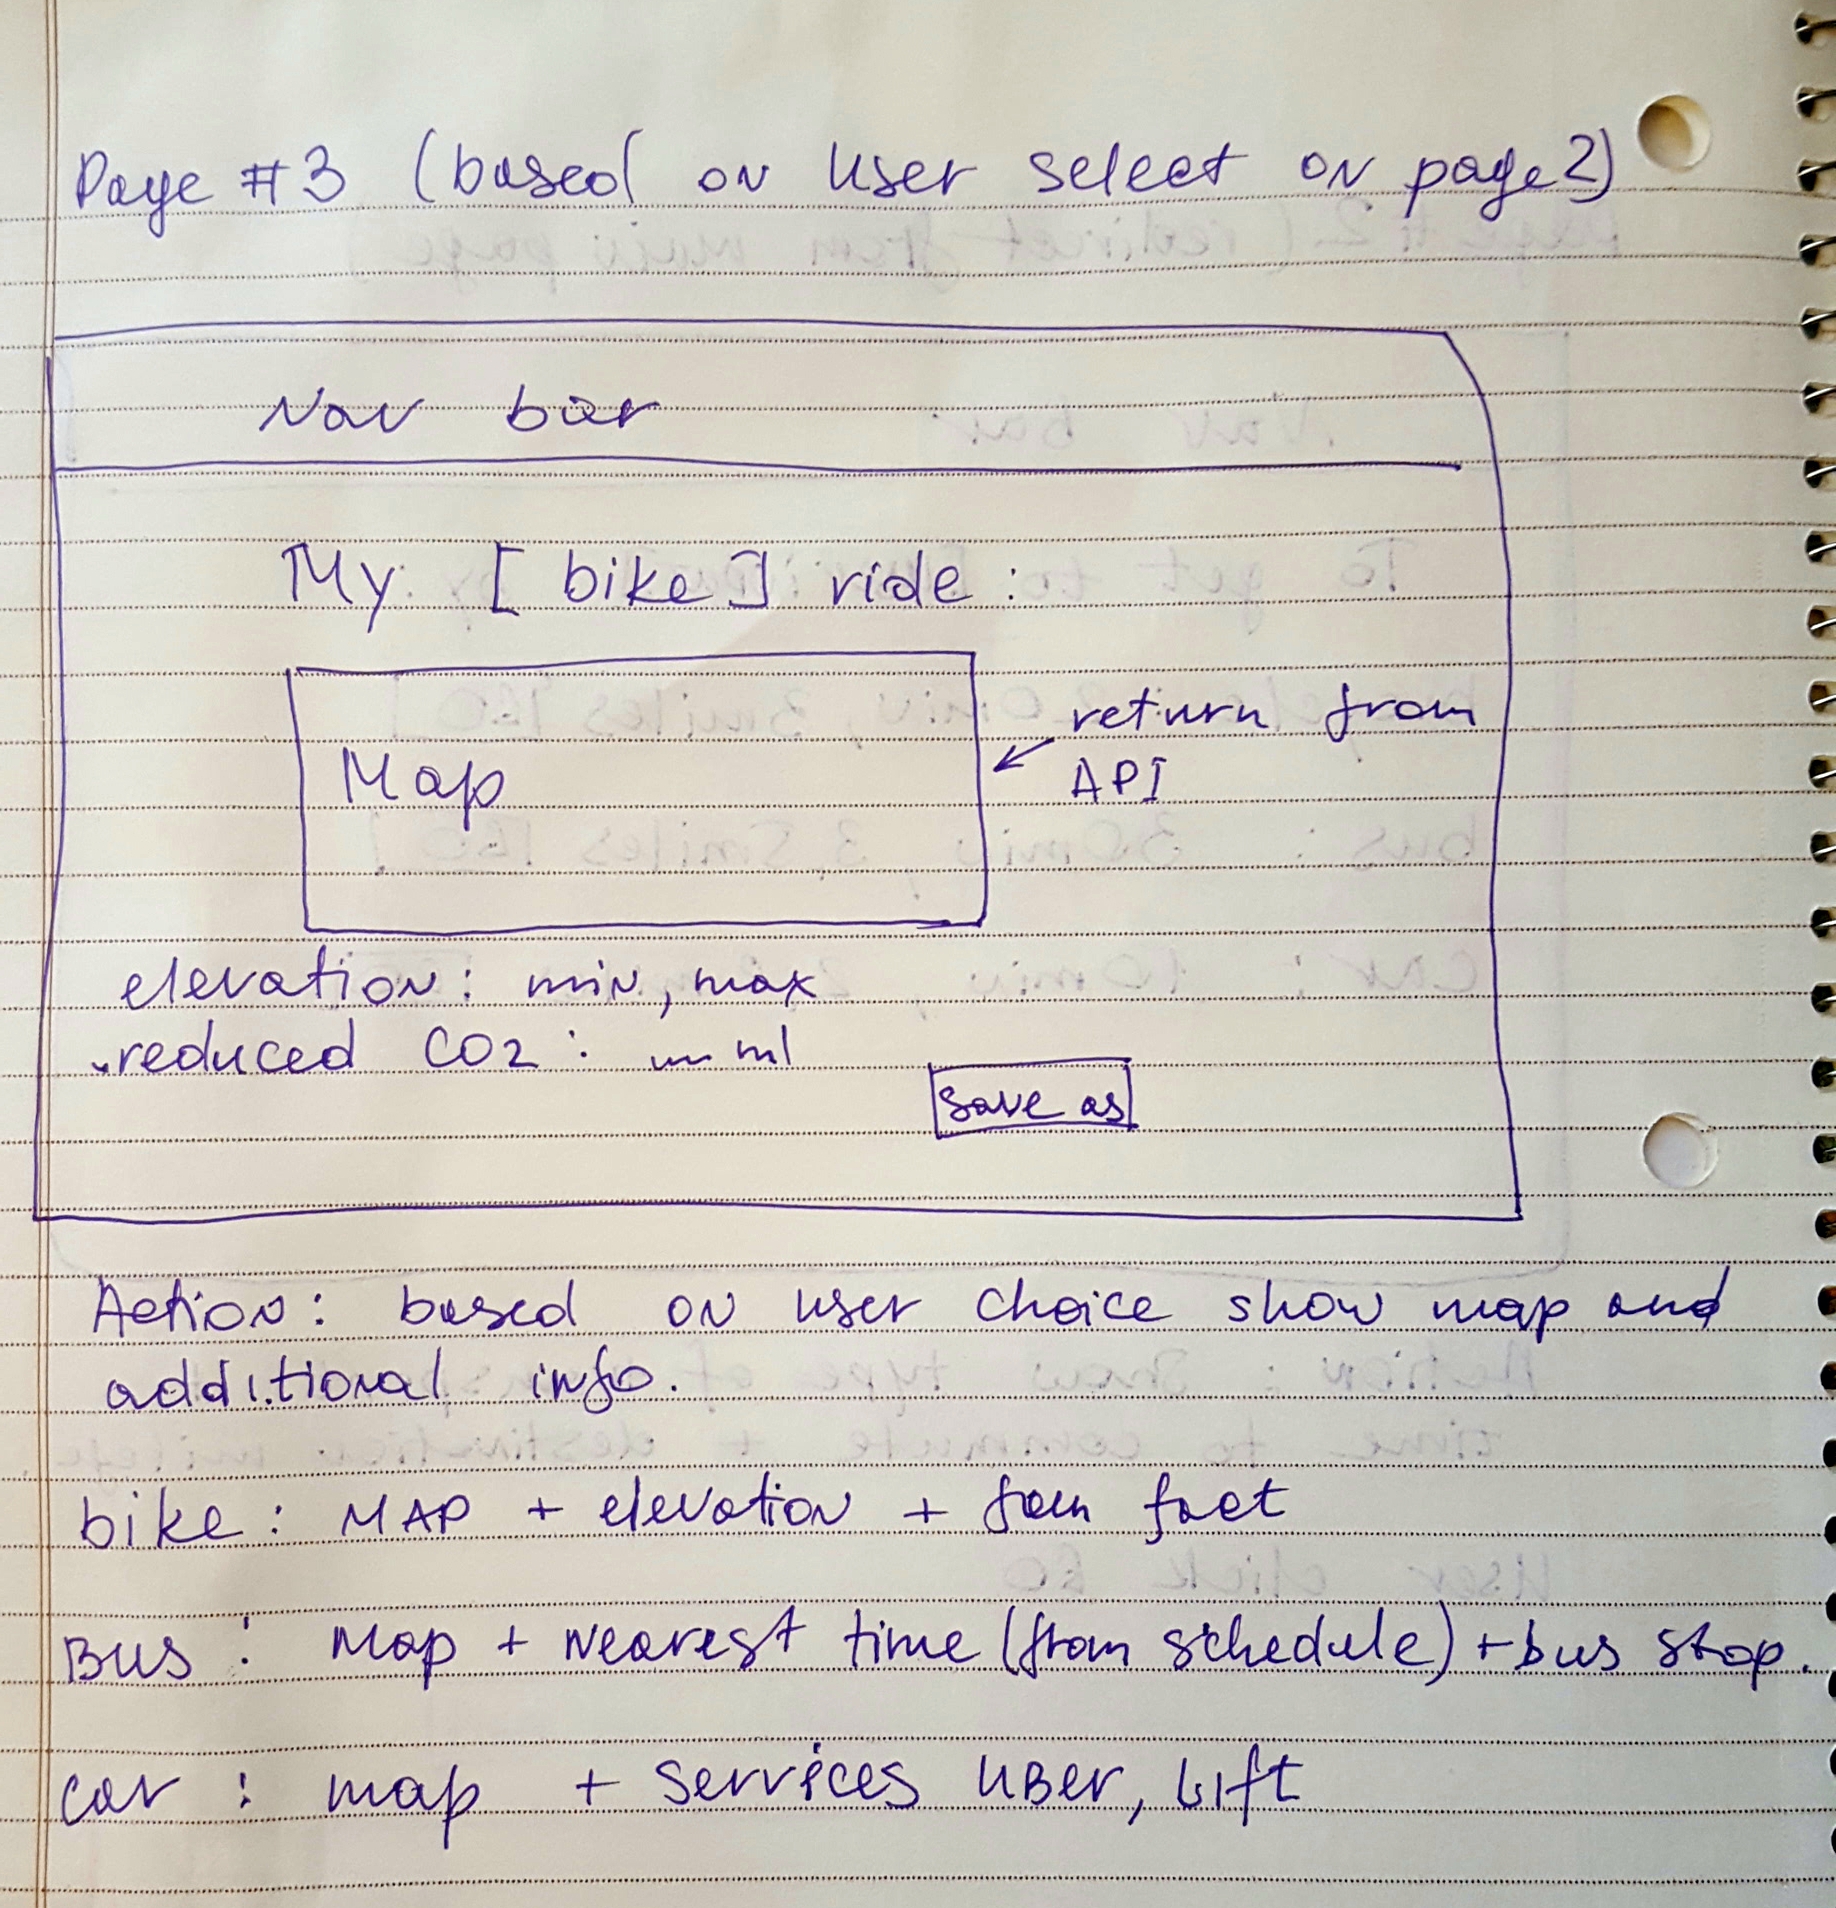 Page #3 (based on user select on page 2)
Nav bar
My [bike] ride:
Map
return from
API
elevation: min, max
reduced CO2: ml
save as
Action: based on user choice show map and
additional info.
bike: MAP + elevation + fact
Bus: map + nearest time (from schedule) + bus stop.
car: map + services UBer, Lift